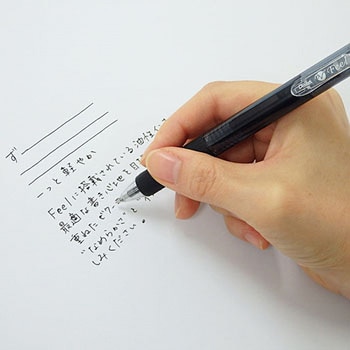 ず
ーっと軽やか
Feelに搭載されている油性
最適な書き心地を目
重ねたビクー
"なめらかさ"と
しみください。
Feel